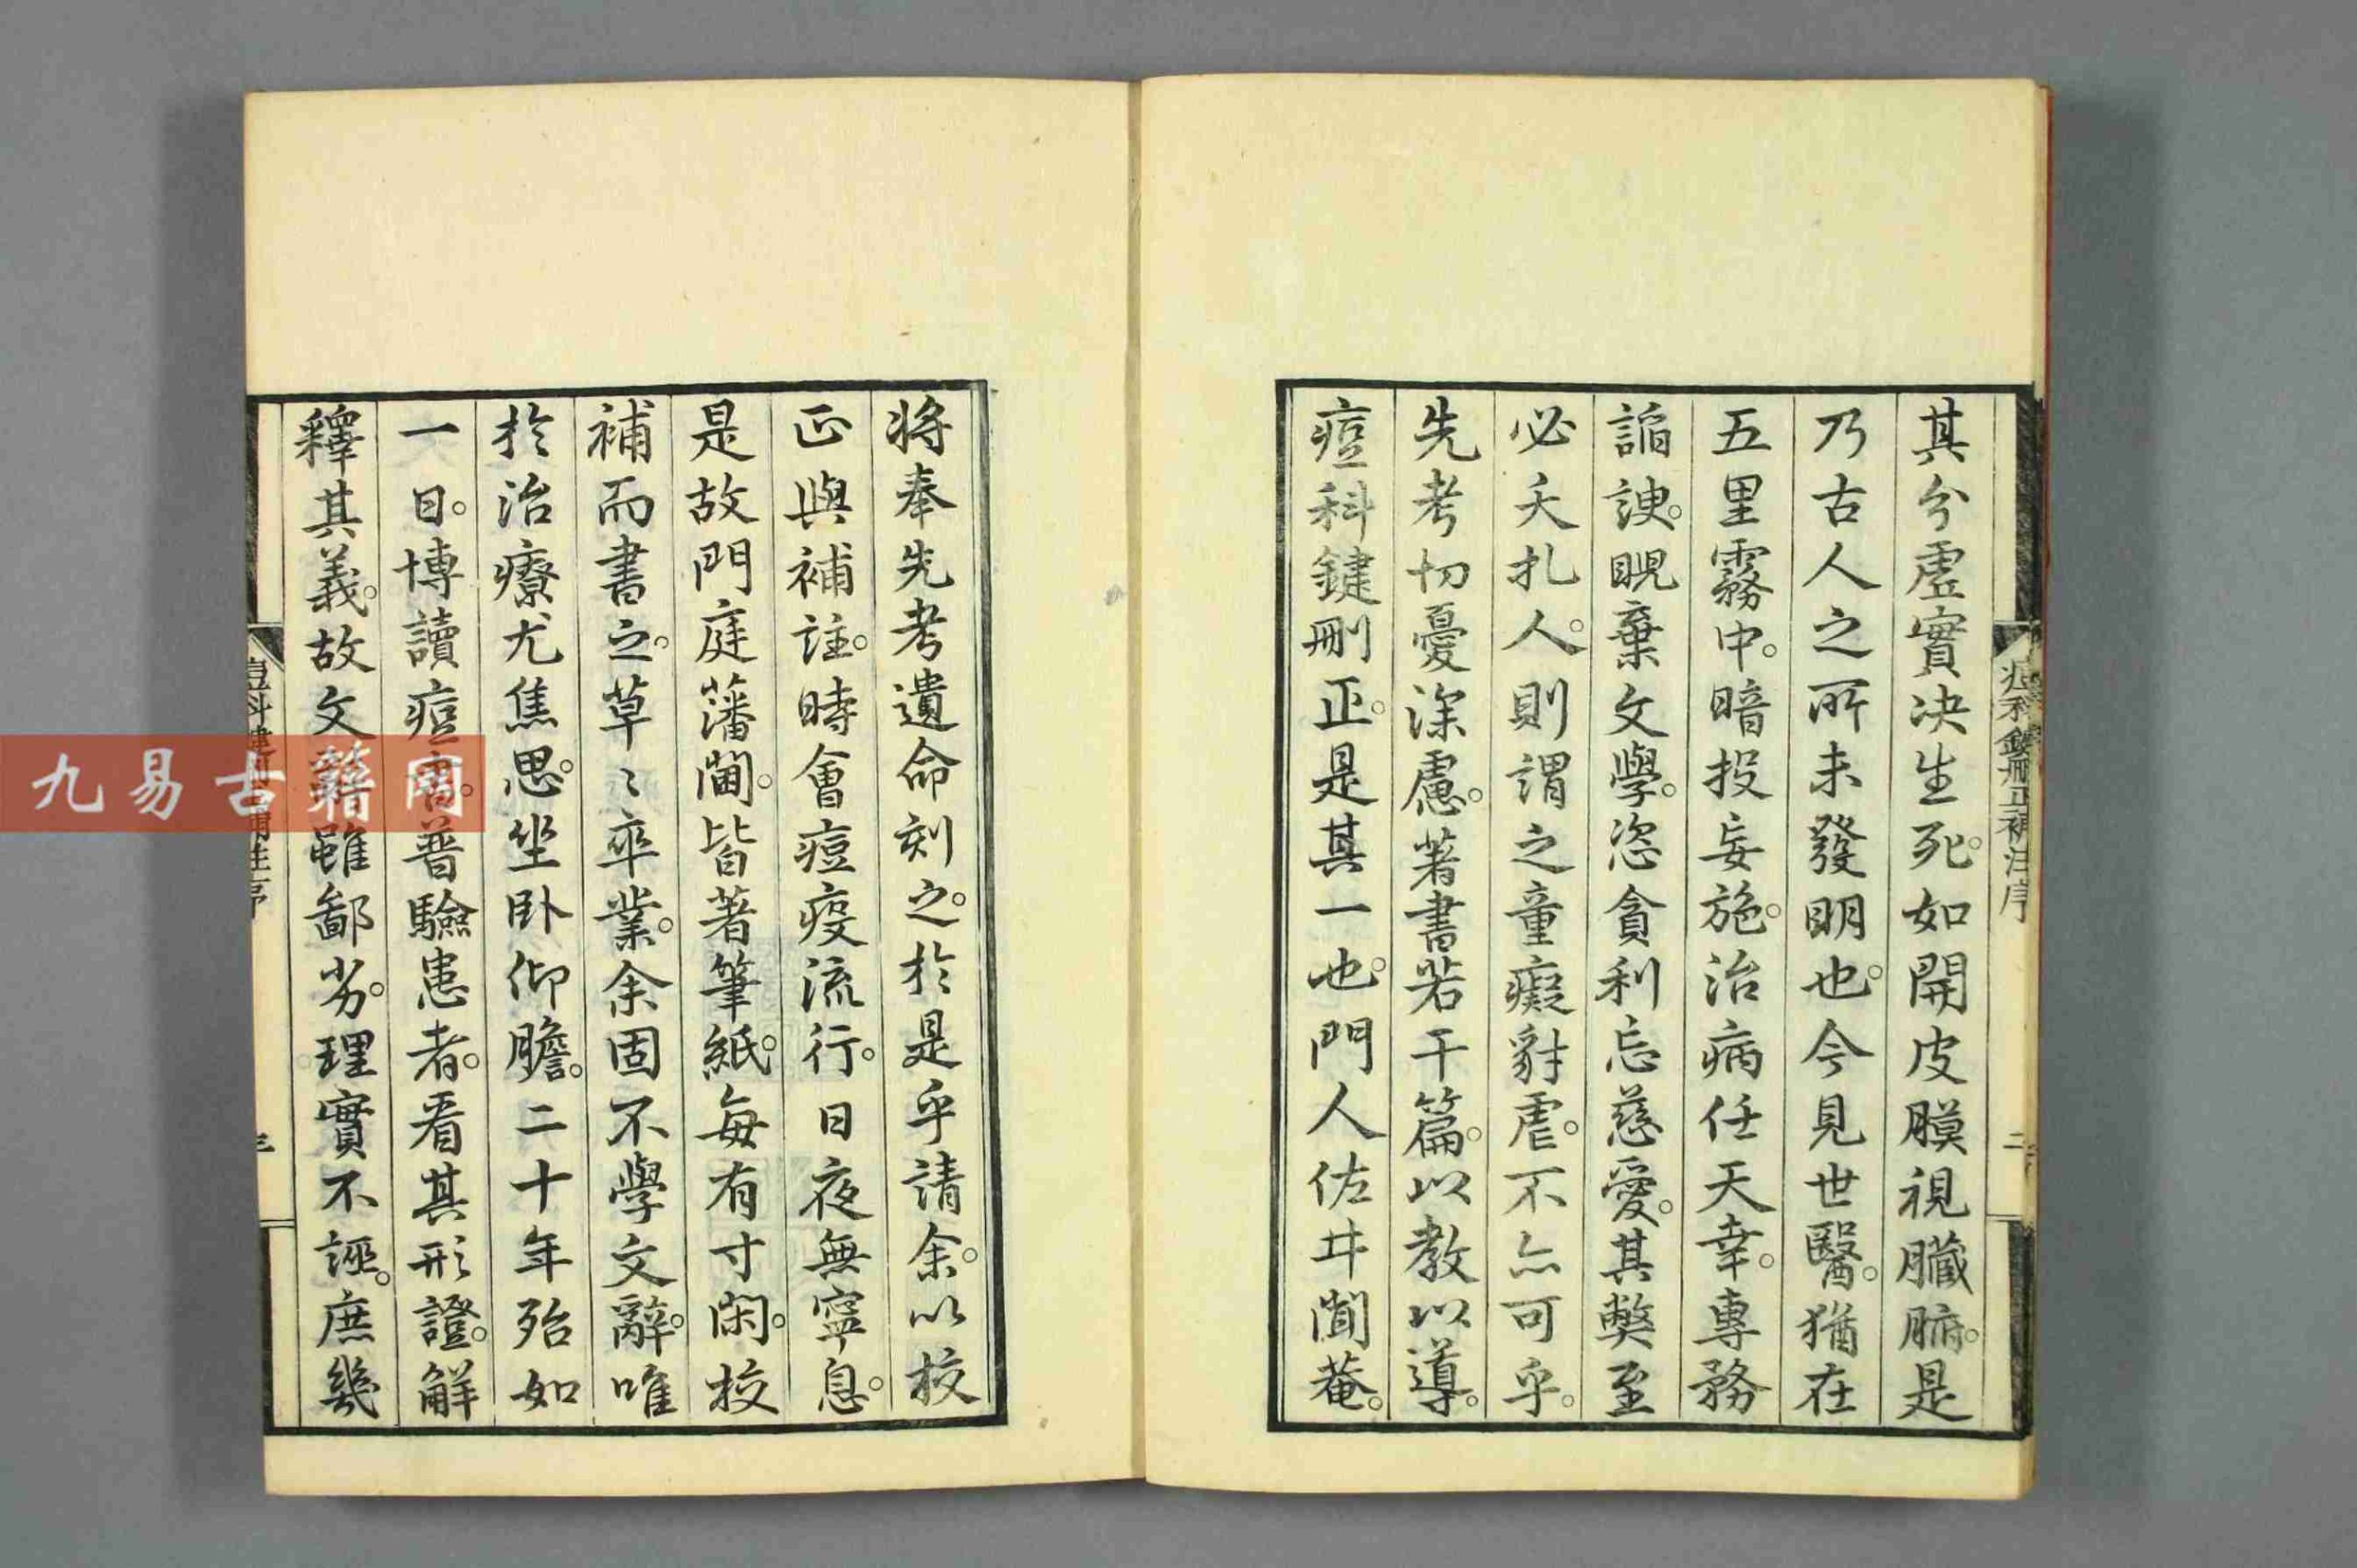 其分虛實决生死。如開皮膜視臟腑。是
乃古人之所未發明也。今見世醫。猶在
五里霧中。暗投妄施。治病任天幸。專務
諂諛。睨棄文學。恣貪利忘慈愛。其弊至
必夭札人。人則謂之童癡豺虐。不亦可乎。
先考切憂深慮。著書若干篇。以教以導。
痘科鍵刪正。是其一也。門人佐井聞菴。
將奉先考遺命刻之。於是乎請余。以校
正與補註。時會痘疫流行。日夜無寧息。
是故門庭藩閫。皆著筆紙。每有寸閑。校
補而書之。草〻卒業。余固不學文辭。唯
於治療尤焦思。坐臥仰膽。二十年殆如
一日。博讀痘書。普驗患者。看其形證。解
釋其義。故文辭雖鄙劣。理實不誣。庶幾
痘科鍵刪正補注序
二
痘科鍵刪正補註序
三
九易古籍网